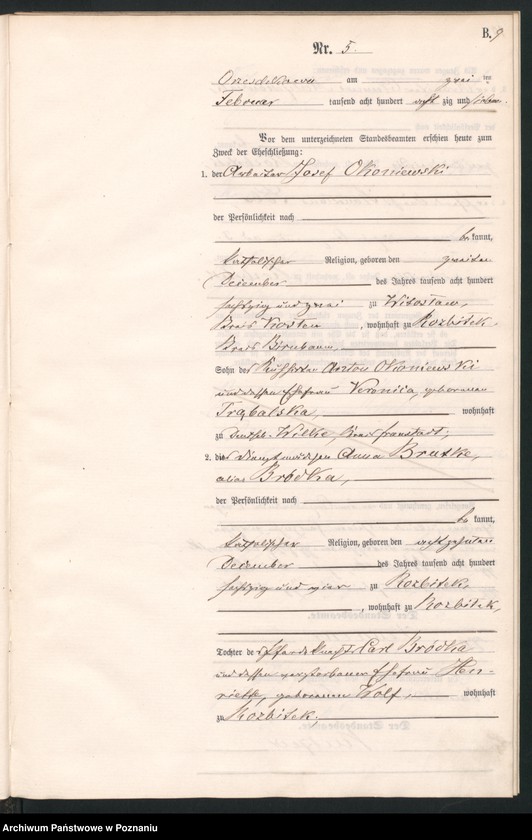 B. 9
Nr. 5.
am zwei ten
Februar tausend acht hundert acht zig und sieben
Vor dem unterzeichneten Standesbeamten erschien heute zum
Zweck der Eheschließung:
1. der Arbeiter Josef Okoniewski
der Persönlichkeit nach
be kannt,
katholischer Religion, geboren den zweiten
Dezember des Jahres tausend acht hundert
sechszig und zwei zu Witoslaw,
Kreis Kosten, wohnhaft zu Rozbitek,
Kreis Birnbaum,
Sohn des Kuhhirten Anton Okoniewski
und dessen Ehefrau Veronica, geborenen
Trąbalska, wohnhaft
zu Deutsch Wilke, Kreis Fraustadt;
2. die Dienstmädchen Anna Brutke,
alias Bródka,
der Persönlichkeit nach
be kannt,
katholischer Religion, geboren den achtzehnten
Dezember des Jahres tausend acht hundert
sechszig und vier zu Rozbitek,
, wohnhaft zu Rozbitek,
Tochter des Pferdeknechts Carl Bródka
und dessen verstorbenen Ehefrau Hen-
riette, geborenen Wolf, wohnhaft
zu Rozbitek.
Archiwum Państwowe w Poznaniu